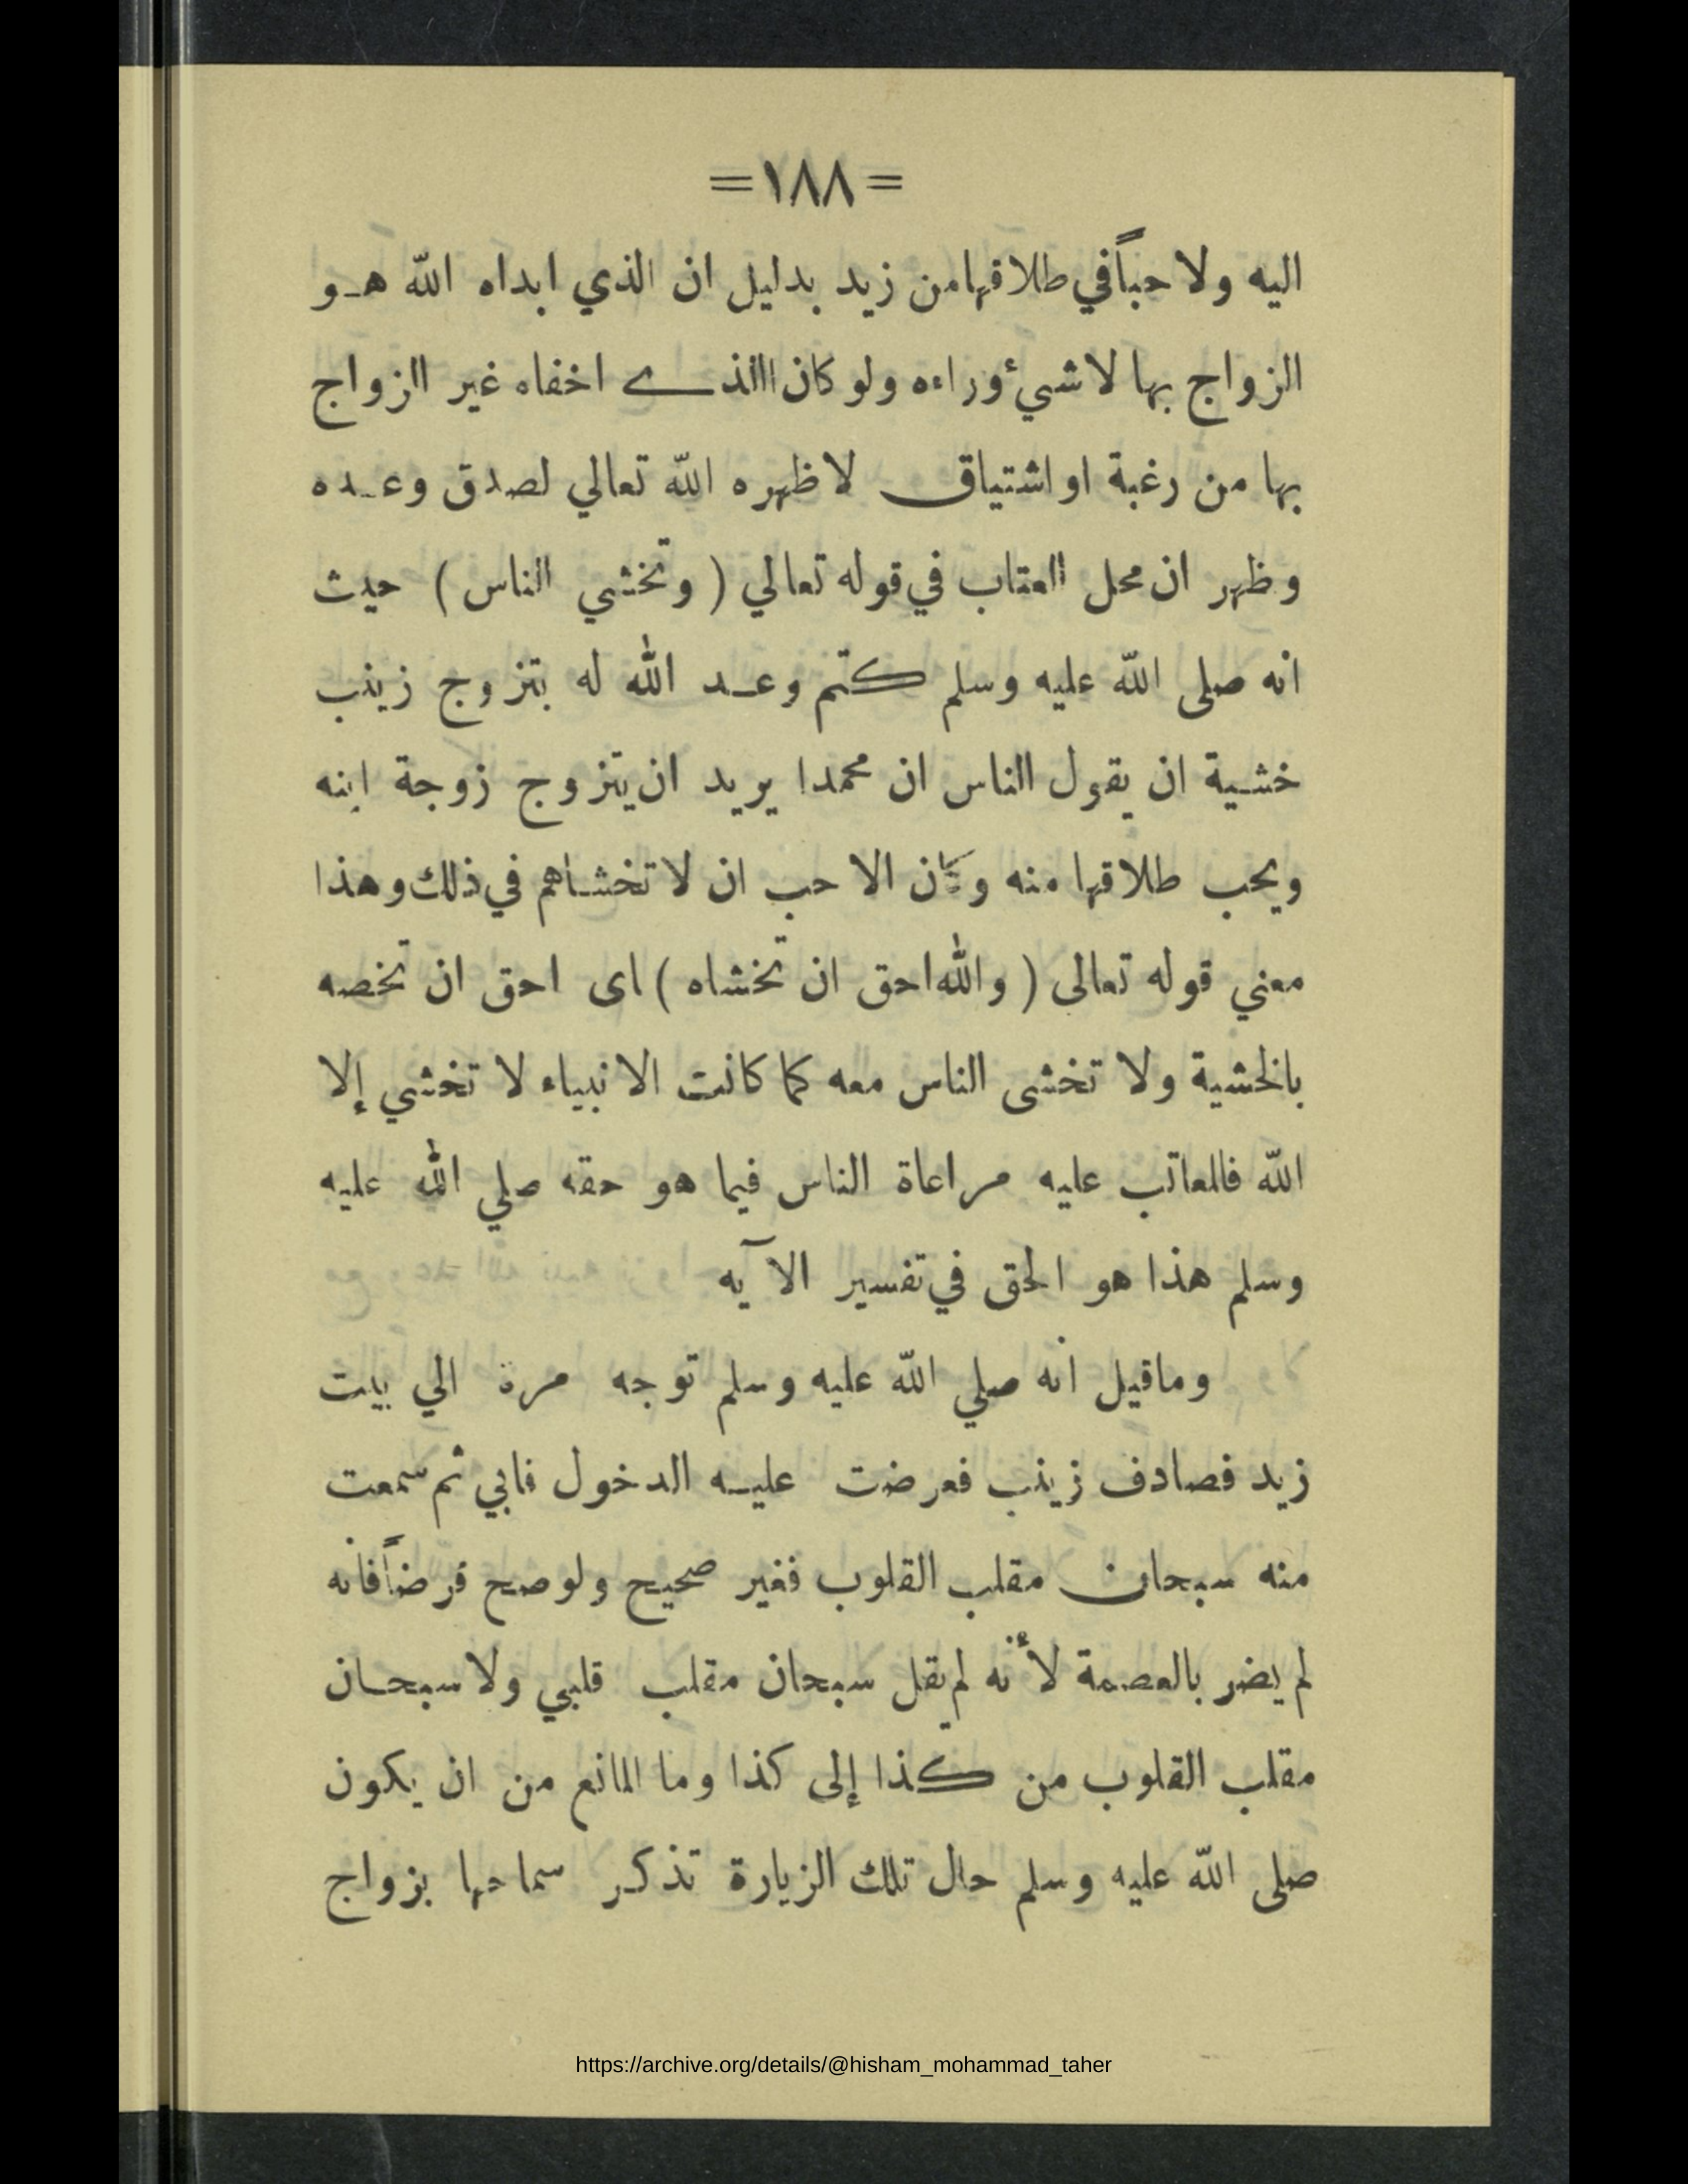 =١٨٨=
اليه ولا حباً في طلاقها من زيد بدليل ان الذي ابداه الله هو
الزواج بها لا شيئ وراءه ولو كان الذي اخفاه غير الزواج
بها من رغبة او اشتياق لاظهره الله تعالي لصدق وعده
وظهر ان محل العتاب في قوله تعالي ( وتخشي الناس ) حيث
انه صلى الله عليه وسلم كتم وعد الله له بتزوج زينب
خشية ان يقول الناس ان محمدا يريد ان يتزوج زوجة ابنه
ويحب طلاقها منه وكان الاحب ان لا تخشاهم في ذلك وهذا
معني قوله تعالى ( والله احق ان تخشاه ) اى احق ان تخصه
بالخشية ولا تخشى الناس معه كما كانت الانبياء لا تخشي إلا
الله فالمعاتب عليه مراعاة الناس فيما هو حقه صلي الله عليه
وسلم هذا هو الحق في تفسير الآيه
وما قيل انه صلي الله عليه وسلم توجه مرة الي بيت
زيد فصادف زينب فعرضت عليه الدخول فابي ثم سمعت
منه سبحان مقلب القلوب فغير صحيح ولو صح فرضاً فانه
لم يضر بالعصمة لأنه لم يقل سبحان مقلب قلبي ولا سبحان
مقلب القلوب من كذا إلى كذا وما المانع من ان يكون
صلى الله عليه وسلم حال تلك الزيارة تذكر سماحها بزواج
https://archive.org/details/@hisham_mohammad_taher